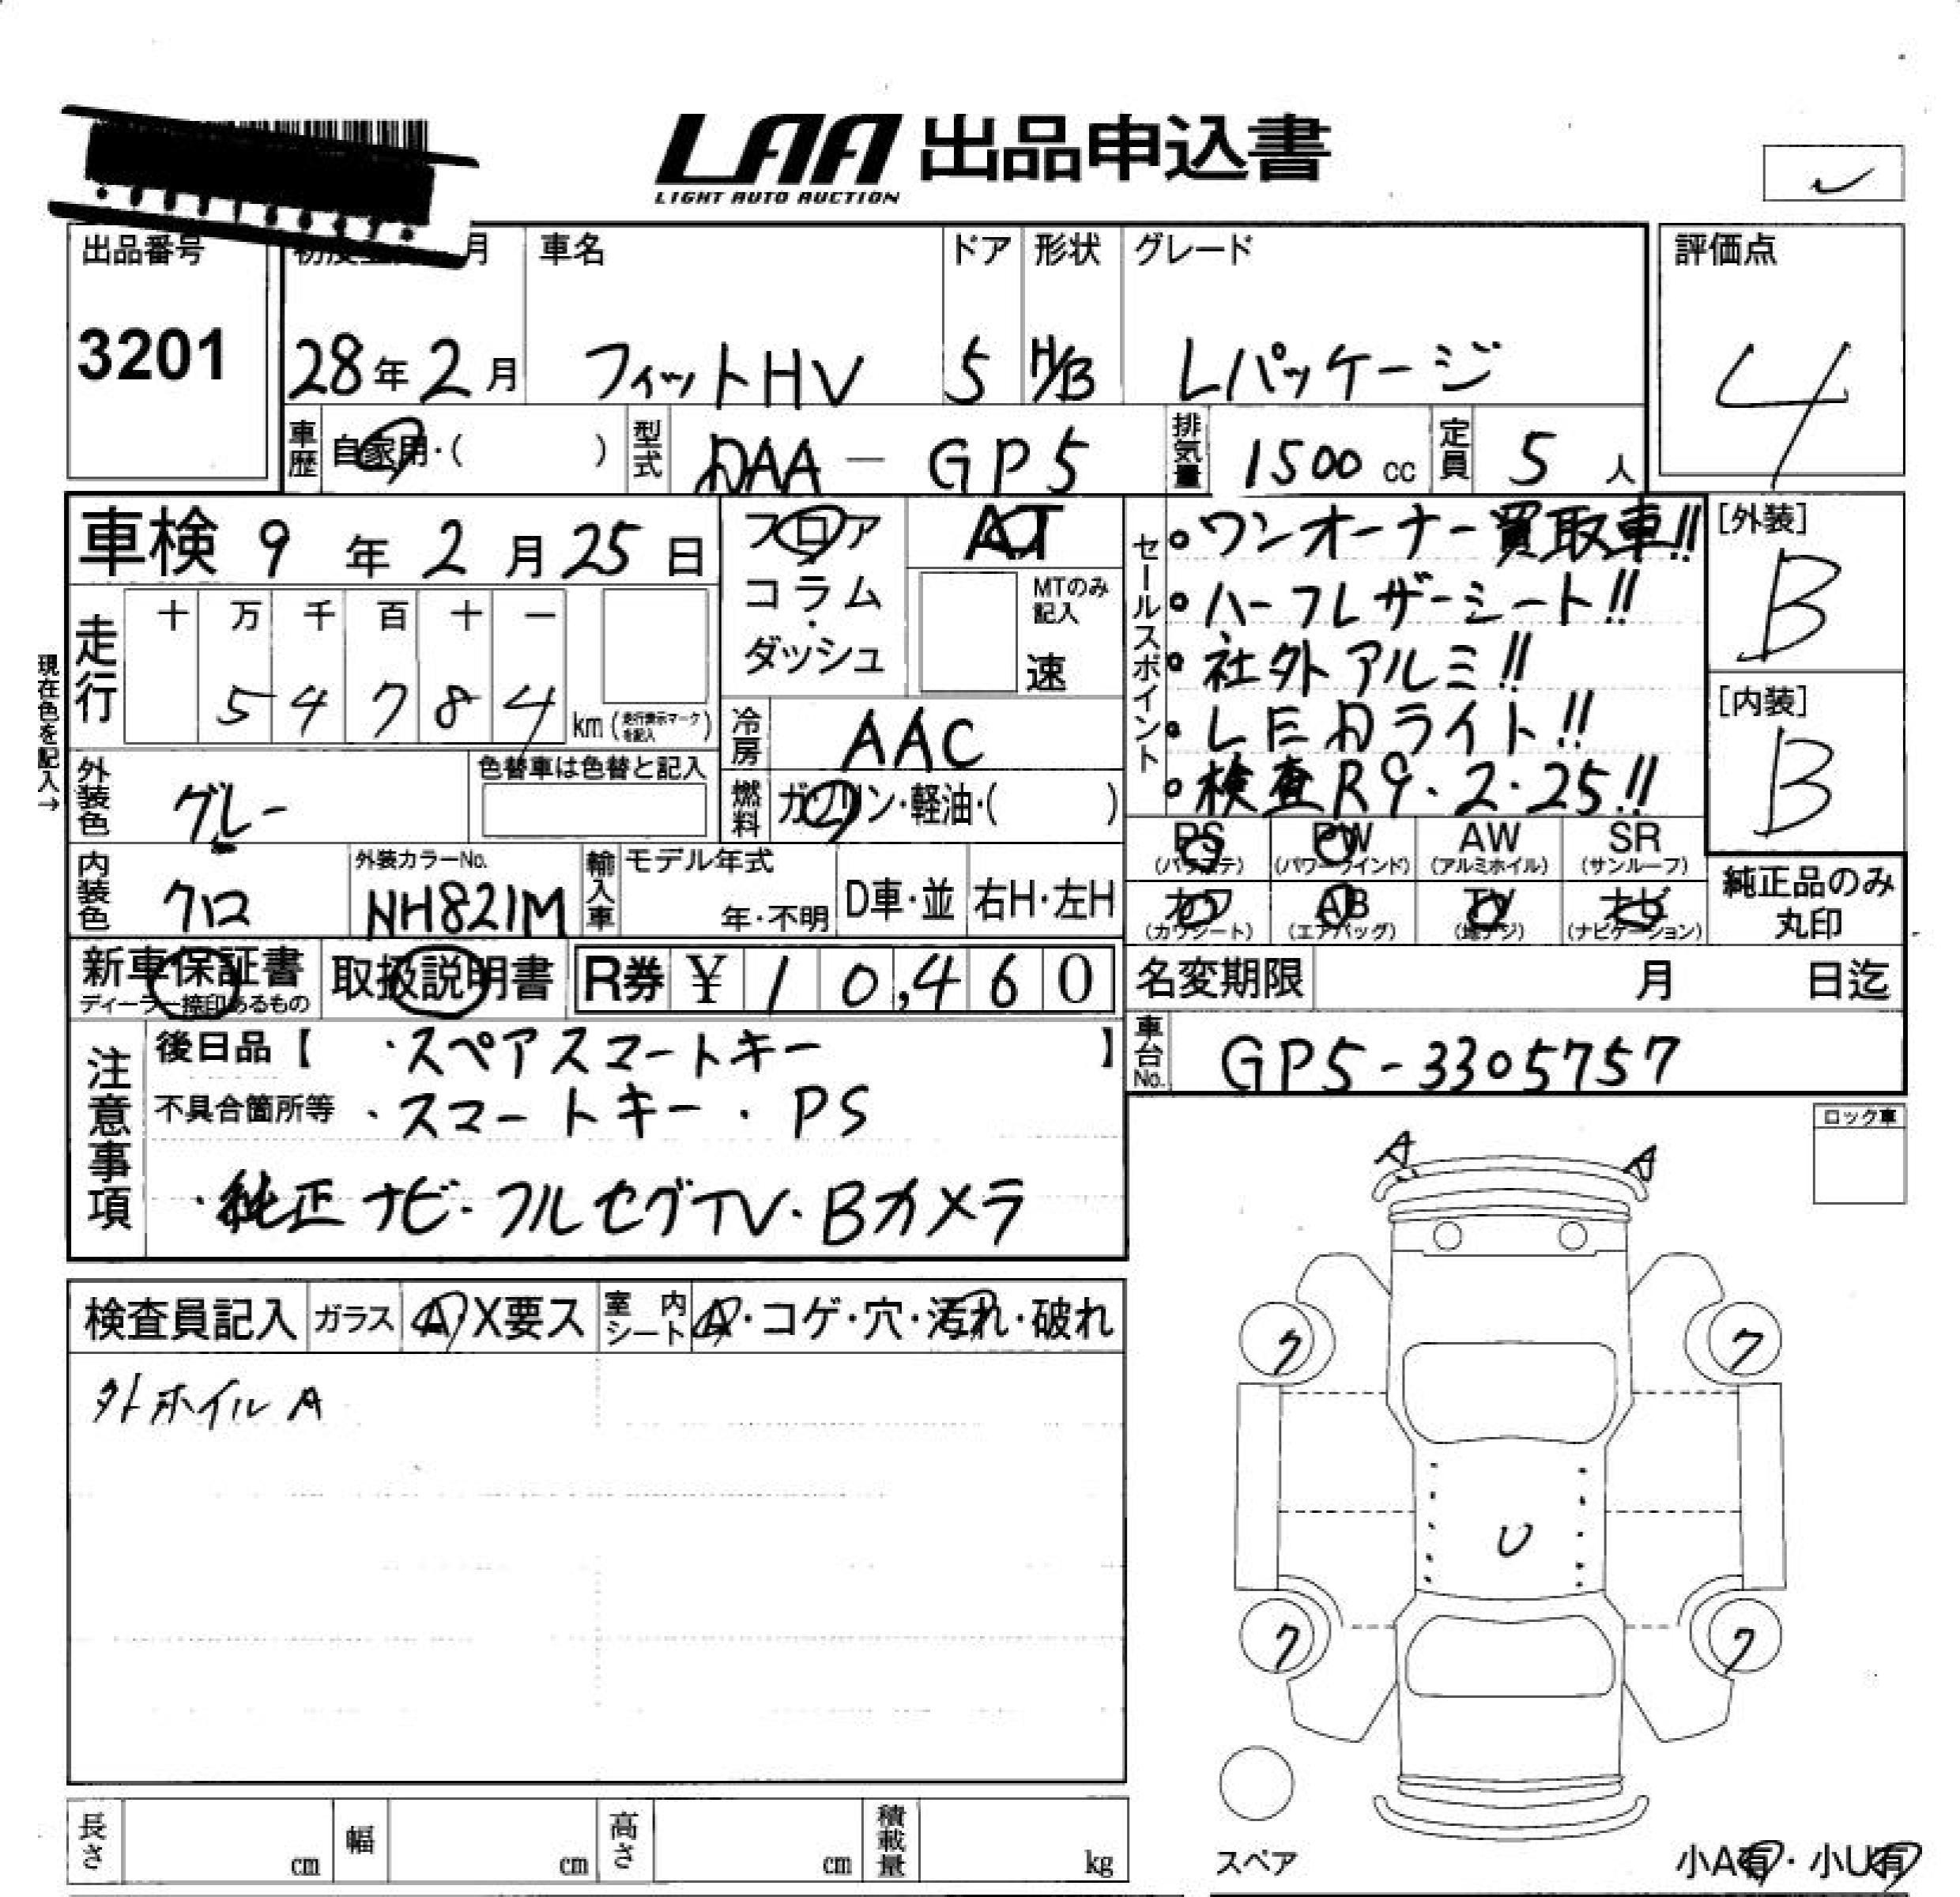 LAA 出品申込書
LIGHT AUTO AUCTION
出品番号 月 車名 ドア 形状 グレード 評価点
3201 28年2月 フィットHV 5 H/B Lパッケージ 4
車歴 自家用・( ) 型式 DAA - GP5 排気量 1500 cc 定員 5 人
車検 9年2月25日 フロア AT
コラム・ダッシュ MTのみ記入 速
セールスポイント
。ワンオーナー買取車!!
。ハーフレザーシート!!
。社外アルミ!!
。LEDライト!!
。検査R9.2.25!!
[外装] B
[内装] B
現在色を記入→
走行 十 万 千 百 十 一
5 4 7 8 4 km (走行表示マークを記入)
冷房 AAC
外装色 グレー 色替車は色替と記入
燃料 ガソリン・軽油・( )
PS (パワステ) PW (パワーウインド) AW (アルミホイル) SR (サンルーフ)
カワ (カワシート) AB (エアバッグ) TV (地デジ) ナビ (ナビゲーション)
純正品のみ丸印
内装色 クロ 外装カラーNo. NH821M 輸入車 モデル年式 年・不明 D車・並 右H・左H
新車保証書 ディーラー捺印あるもの 取扱説明書 R券 ¥ 10,460
名変期限 月 日迄
車台No. GP5-3305757
注意事項
後日品【 ・スペアスマートキー 】
不具合箇所等 ・スマートキー・PS
・純正ナビ・フルセグTV・Bカメラ
ロック車
検査員記入 ガラス A X要ス 室内シート A・コゲ・穴・汚れ・破れ
外ホイルA
A A
ク ク
U
ク ク
スペア
小A有・小U有
長さ cm 幅 cm 高さ cm 積載量 kg